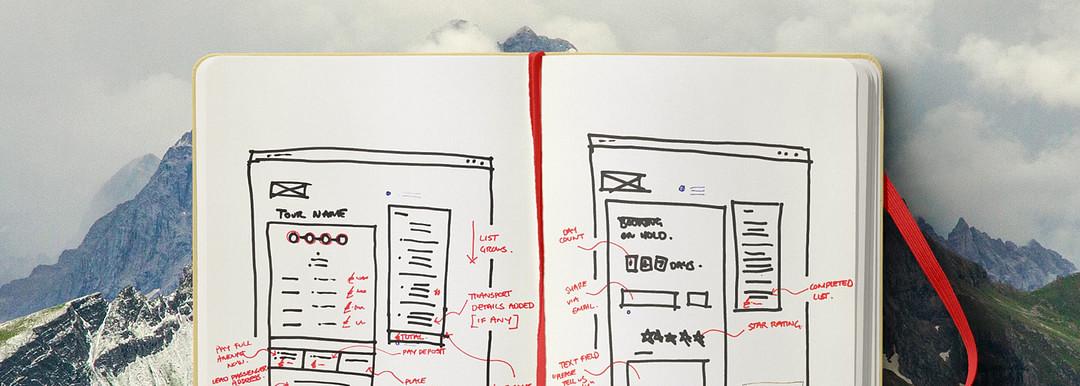 TOUR NAME
LIST
GROWS.
TRANSPORT
DETAILS ADDED
[IF ANY]
TOTAL
PAY FULL
AMOUNT
NOW.
PAY DEPOSIT
LEAD PASSENGER
ADDRESS.
PLACE
BOOKING
ON HOLD.
DAY
COUNT
DAYS.
SHARE
VIA
EMAIL.
COMPLETED
LIST.
STAR RATING
TEXT FIELD
TELL US